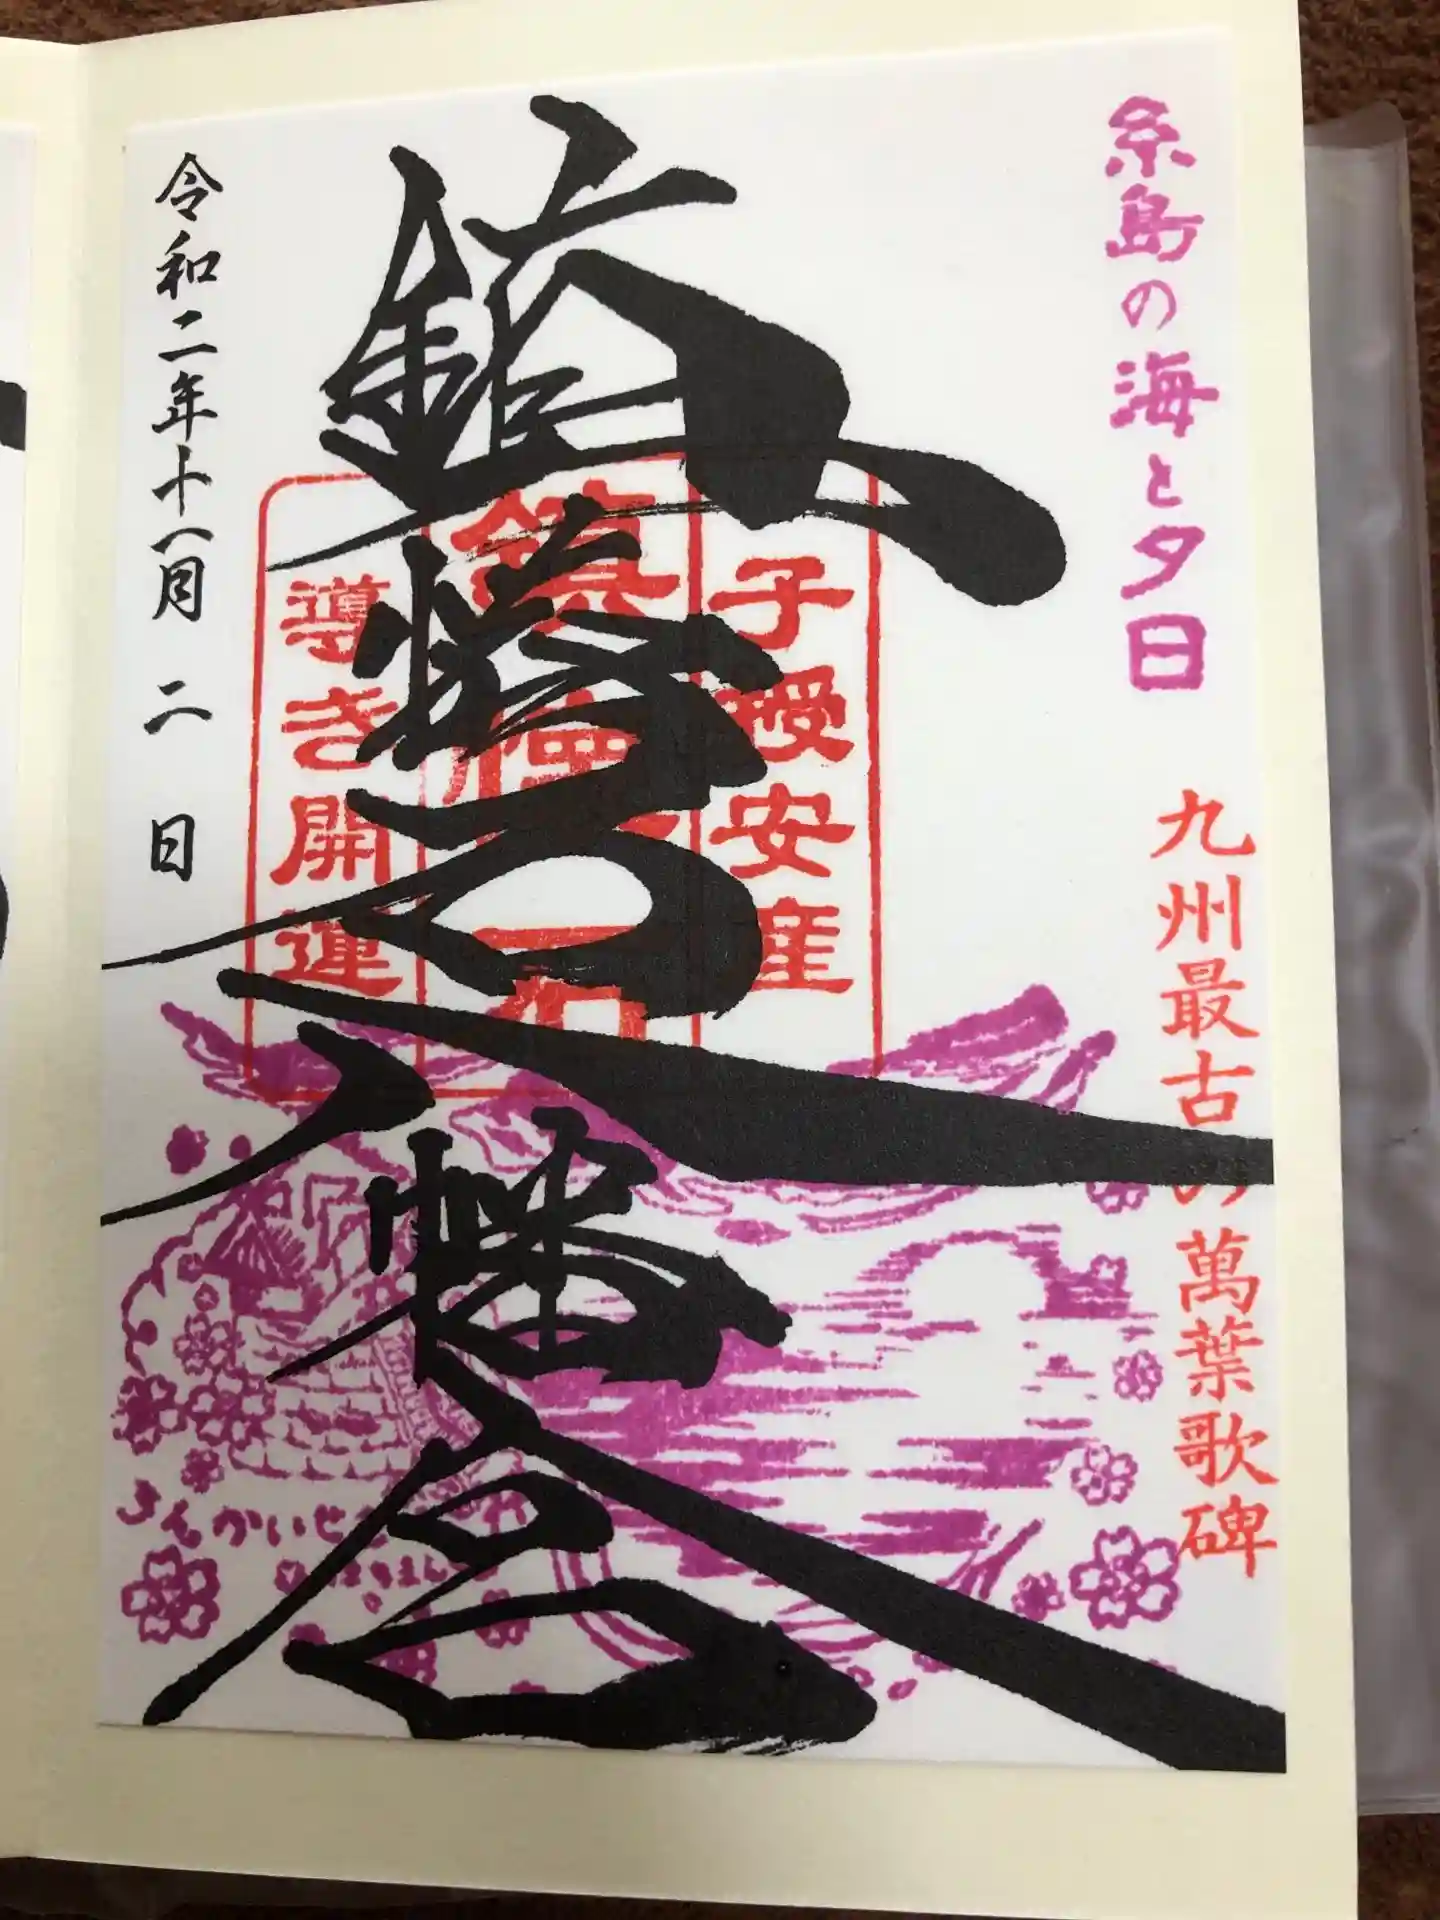 糸島の海と夕日
九州最古の萬葉歌碑
鎮懐石八幡宮
子授安産
鎮懐石
導き開運
令和二年十一月二日
ちんかいせ
はちまん